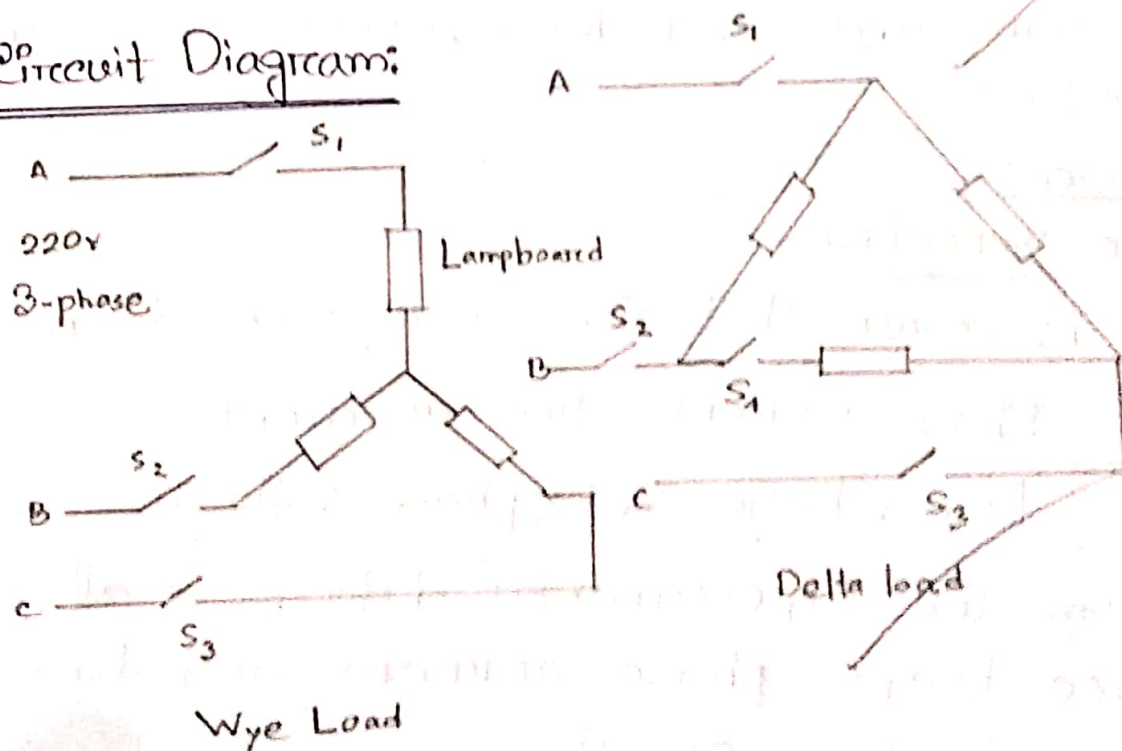 Circuit Diagram:
A S1
220v
3-phase
Lampboard
S2
B
C
S3
Wye Load
S1
A
S2
B
S1
C
S3
Delta load